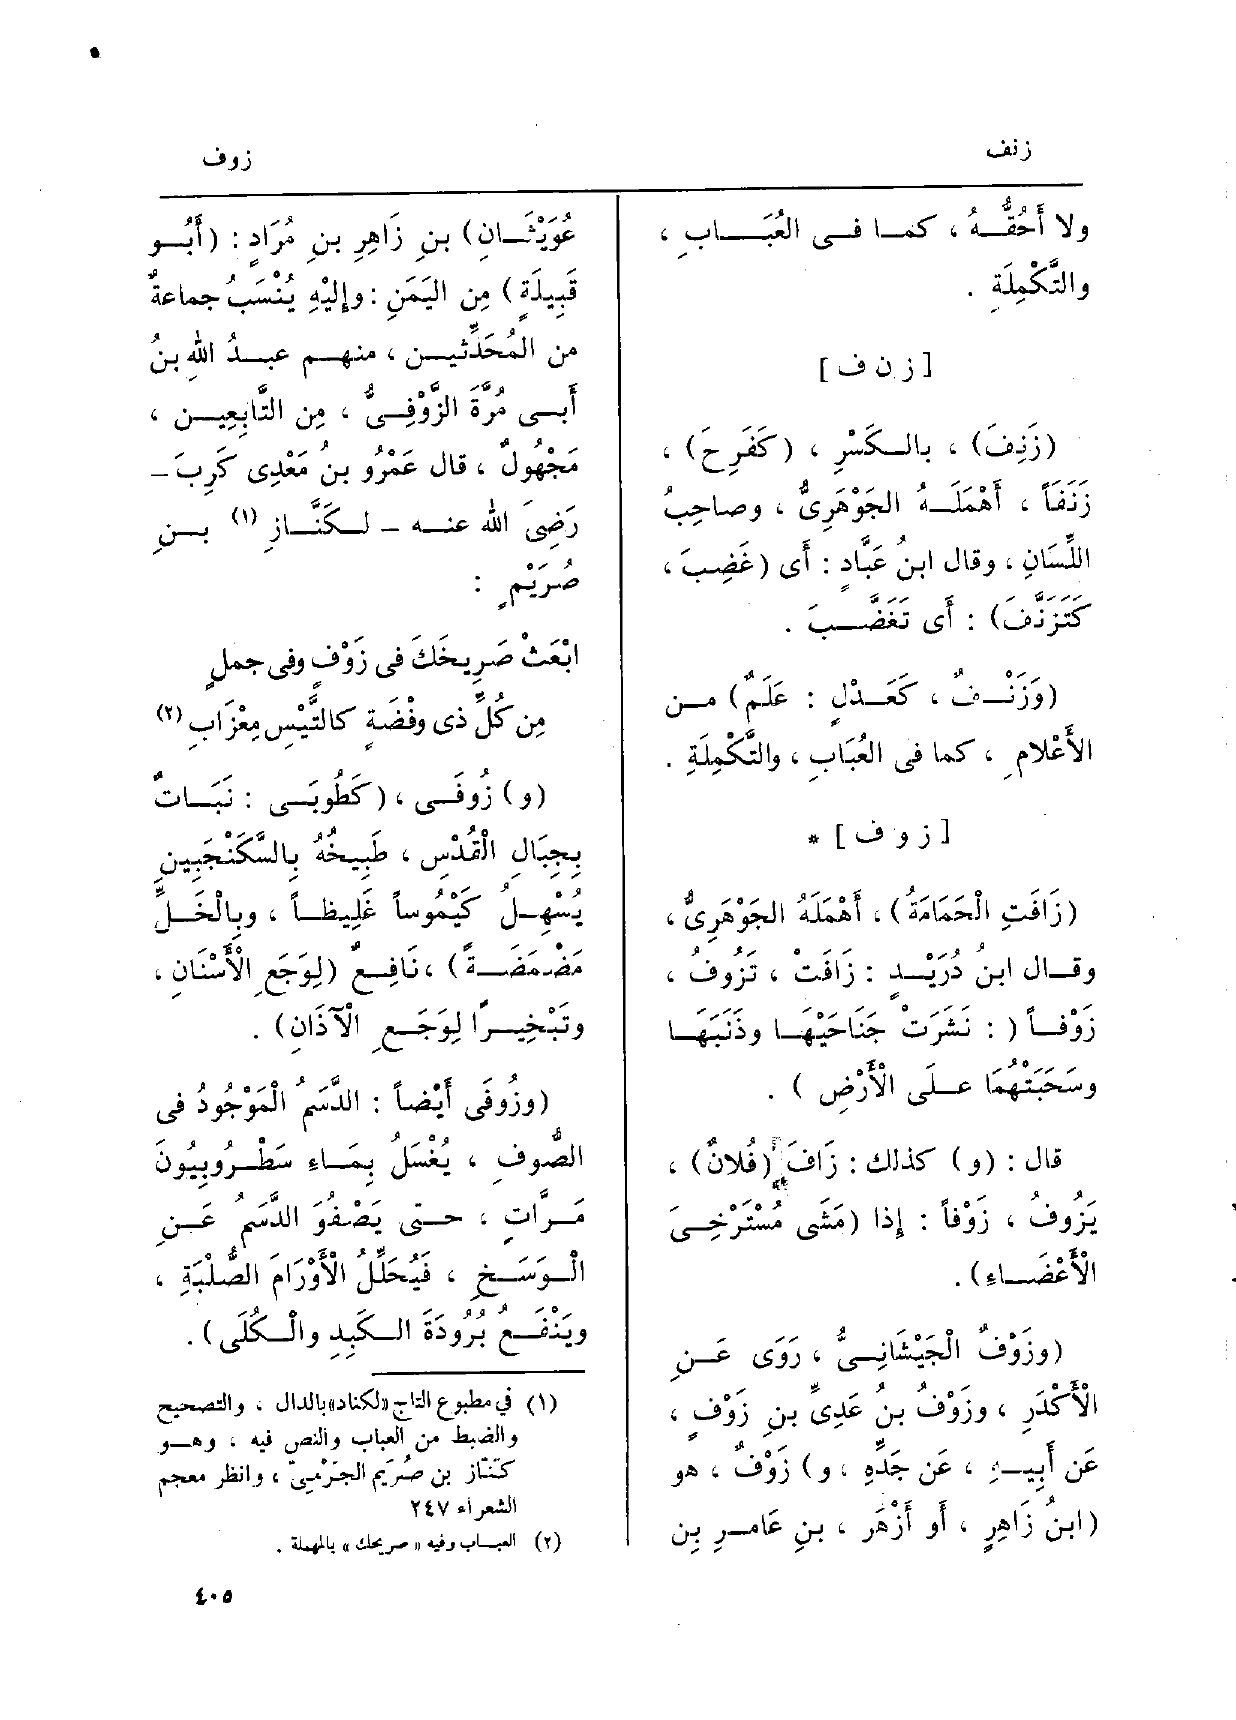 زنف
زوف
ولا أَحُقُّهُ ، كما فى العُبَابِ ،
والتَّكْمِلَةِ .
[ ز ن ف ]
(زَنِفَ) ، بالكَسْرِ ، (كَفَرِحَ) ،
زَنَفَاً ، أَهْمَلَهُ الجَوْهَرِىُّ ، وصاحِبُ
اللِّسَانِ ، وقال ابنُ عَبَّادٍ : أَى (غَضِبَ ،
كَتَزَنَّفَ) : أَى تَغَضَّبَ .
(وَزَنْفٌ ، كَعَدْلٍ : عَلَمٌ) من
الأَعْلامِ ، كما فى العُبَابِ ، والتَّكْمِلَةِ .
[ ز و ف ] *
(زَافَتِ الْحَمَامَةُ) ، أَهْمَلَهُ الجَوْهَرِىُّ ،
وقال ابنُ دُرَيْدٍ : زَافَتْ ، تَزُوفُ ،
زَوْفاً ( : نَشَرَتْ جَنَاحَيْهَا وذَنَبَهَا
وسَحَبَتْهُمَا علَى الْأَرْضِ ) .
قال : (و) كذلك : زَافَ (فُلانٌ) ،
يَزُوفُ ، زَوْفاً : إذا (مَشَى مُسْتَرْخِىَ
الْأَعْضَاءِ) .
(وزَوْفٌ الْجَيْشَانِىُّ ، رَوَى عَنِ
الْأَكْدَرِ ، وزَوْفُ بنُ عَدِىِّ بنِ زَوْفٍ ،
عَن أَبِيهِ ، عَن جَدِّهِ ، و) زَوْفٌ ، هو
(ابنُ زَاهِرٍ ، أَو أَزْهَر ، بنِ عَامرِ بن
عُوَيْثَانِ) بنِ زَاهِرِ بنِ مُرَادٍ : (أَبُو
قَبِيلَةٍ) مِن اليَمَنِ : وإِلَيْهِ يُنْسَبُ جماعةٌ
من المُحَدِّثين ، منهم عبدُ اللهِ بنُ
أَبى مُرَّةَ الزَّوْفِىُّ ، مِن التَّابِعِين ،
مَجْهُولٌ ، قال عَمْرُو بنُ مَعْدِى كَرِبَ –
رَضِىَ الله عنه – لكَنَّازِ (١) بنِ
صُرَيْمٍ :
ابْعَثْ صَرِيخَكَ فى زَوْفٍ وفى جملٍ
مِن كُلِّ ذى وفْضَةٍ كالتَّيْسِ مِعْزَابِ (٢)
(و) زُوفَى ، (كَطُوبَى : نَبَاتٌ
بِجِبَالِ الْقُدْسِ ، طَبِيخُهُ بِالسَّكَنْجَبِينِ
يُسْهِلُ كَيْمُوساً غَلِيظاً ، وبِالْخَلِّ
مَضْمَضَةً) ، نَافِعٌ (لِوَجَعِ الْأَسْنَانِ ،
وتَبْخِيرًا لِوَجَعِ الْآذَانِ) .
(وزُوفَى أَيْضاً : الدَّسَمُ الْمَوْجُودُ فى
الصُّوفِ ، يُغْسَلُ بِمَاءِ سَطْرُوبِيُونَ
مَرَّاتٍ ، حتى يَصْفُوَ الدَّسَمُ عَنِ
الْوَسَخِ ، فَيُحَلِّلُ الْأَوْرَامَ الصُّلْبَةِ ،
ويَنْفَعُ بُرُودَةَ الكَبِدِ والْكُلَى) .
(١) في مطبوع التاج «لكناد» بالدال ، والتصحيح
والضبط من العباب والنص فيه ، وهو
كَنّاز بن صُرَيم الجَرْمىّ ، وانظر معجم
الشعراء ٢٤٧
(٢) العباب وفيه «صريحك» بالمهملة .
٤٠٥